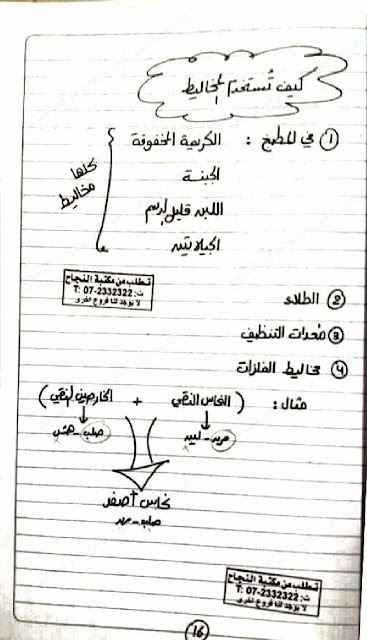 كيف تُستخدم المخاليط
① في المطبخ : الكريمة المخفوقة
الجبنة
اللبن قليل الدسم
الجيلاتين
كلها مخاليط
② الطلاء
③ مُعدات التنظيف
④ مخاليط الفلزات
مثال : ( النحاس النقي + الخارصين النقي )
مرن - لين صلب - هش
نحاس أصفر
صلب - مرن
تطلب من مكتبة النجاح
ت: 07-2332322 T:
لا يوجد لنا فروع اخرى
تطلب من مكتبة النجاح
ت: 07-2332322 T:
لا يوجد لنا فروع اخرى
16